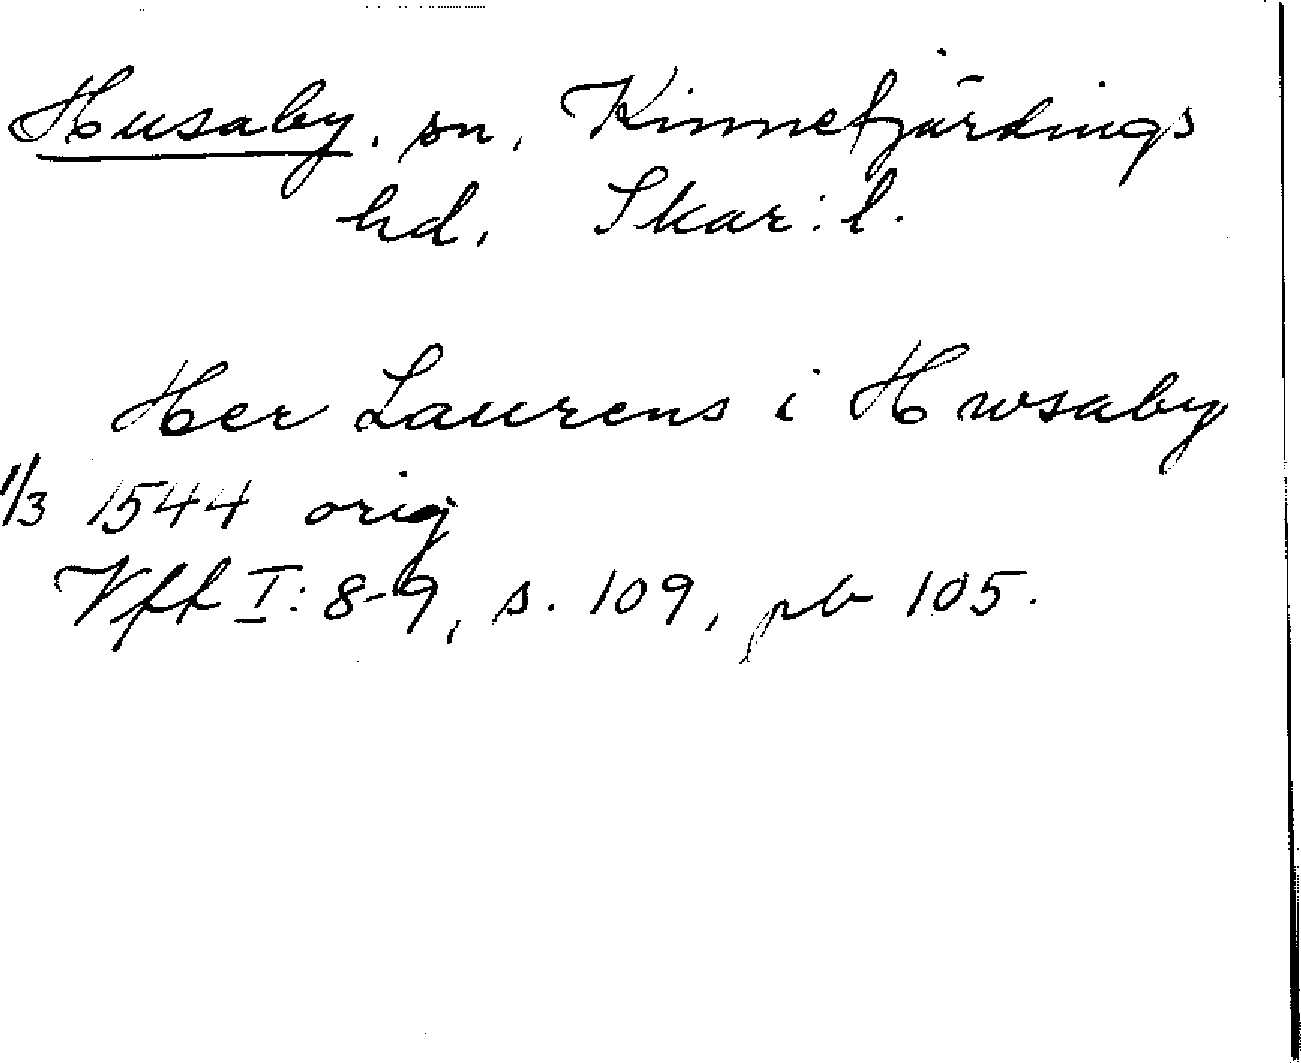 Husaby, sn, Kinnefjärdings
hd, Skar: l.
Her Laurens i Hwsaby
1/3 1544 orig
Vff I: 8-9, s. 109, pb 105.